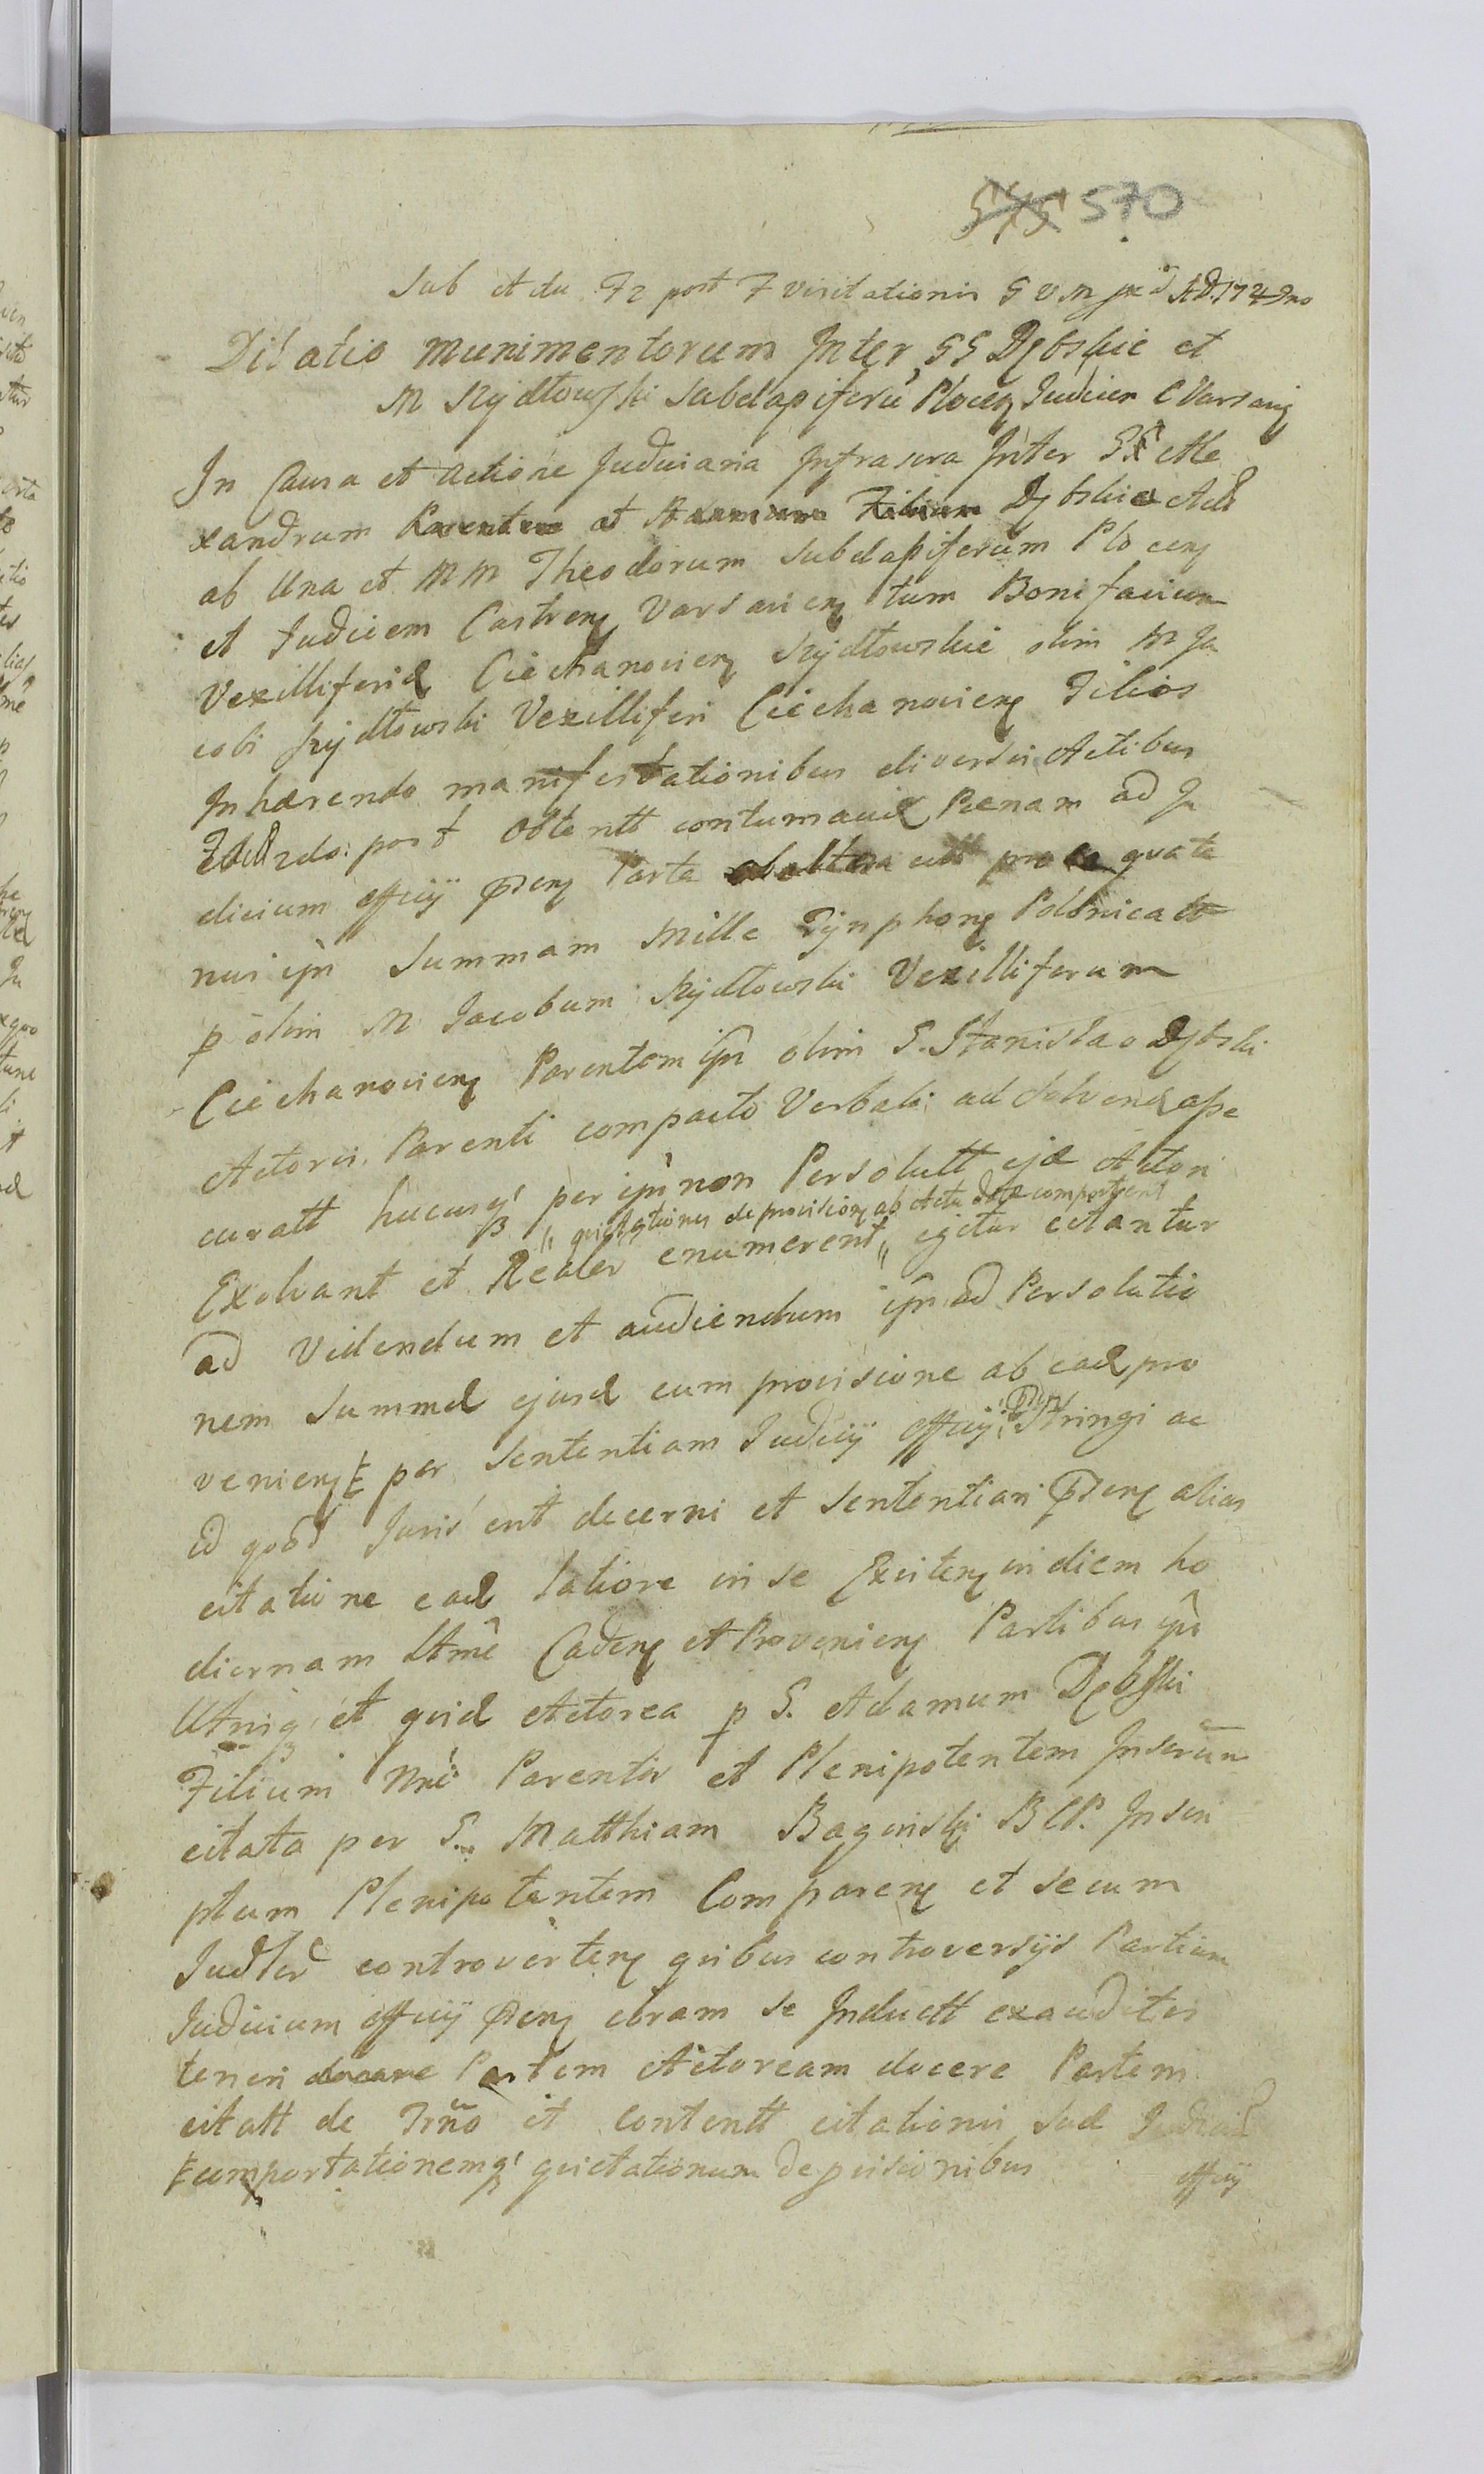 575 570
Sub actu F2 post F visitationis B V M AD. 1749no
Dilatio munimentorum Inter GG Dębskie et
M Szydłowski Subdapiferū Plocen Judicem C Varsavien
In Causa et Actione Judiciaria Infrascra Inter GG Ale
xandrum Parentem et Adamum Filium Dębskie Act
ab Una et MM Theodorum Subdapiferum Plocen
et Judicem Castren Varsavien tum Bonifacium
Vexilliferid Ciechanovien Szydłowskie olim M Ja
cobi Szydłowski Vexilliferi Ciechanovien Filios
Inhærendo manifestationibus diversis Actibus
post Obtentt contumaciæ Pænam ad Ju
dicium officij pnen Parte ab altera citt pro eo quate
nus ipsi Summam Mille Tynphon Polonicatt
p olim M Jacobum Szydłowski Vexilliferum
Ciechanovien Parentem ipsi olim G. Stanislao Dębski
Actoris Parenti compacto Verbali ad solvend asse
curatt hucusq per ipsi non Persolutt ejæ Actori
quietationes de provisione ab Actu date comportent
Exolvant et Realer enumerent igitur citantur
ad Videndum et audiendum ipsi ad Persolutio
nem Summæ ejusd cum provisione ab ead pro
venien per Sententiam Judicij officij pnen Stringi ac
id quod Juris erit decerni et sententiari pnen alias
citatione ead latiore in se Existen in diem ho
diernam ltme Caden et Provenien Partibus ipsi
Utrisq et quid Actorea p G. Adamum Dębski
Filium Nne Parentis et Plenipotentem Inscrum
citata per G. Matthiam Baginski BCP. Inscri
ptum Plenipotentem Comparen et secum
Judler controverten quibus controversijs Partium
Judicium officij pnen coram se Inductt exauditis
teneri docere Partem Actoream docere Partem
citatt de Trno et Contentt citationis sud Judicio
comportationemq quietationum de pvisionibus officij